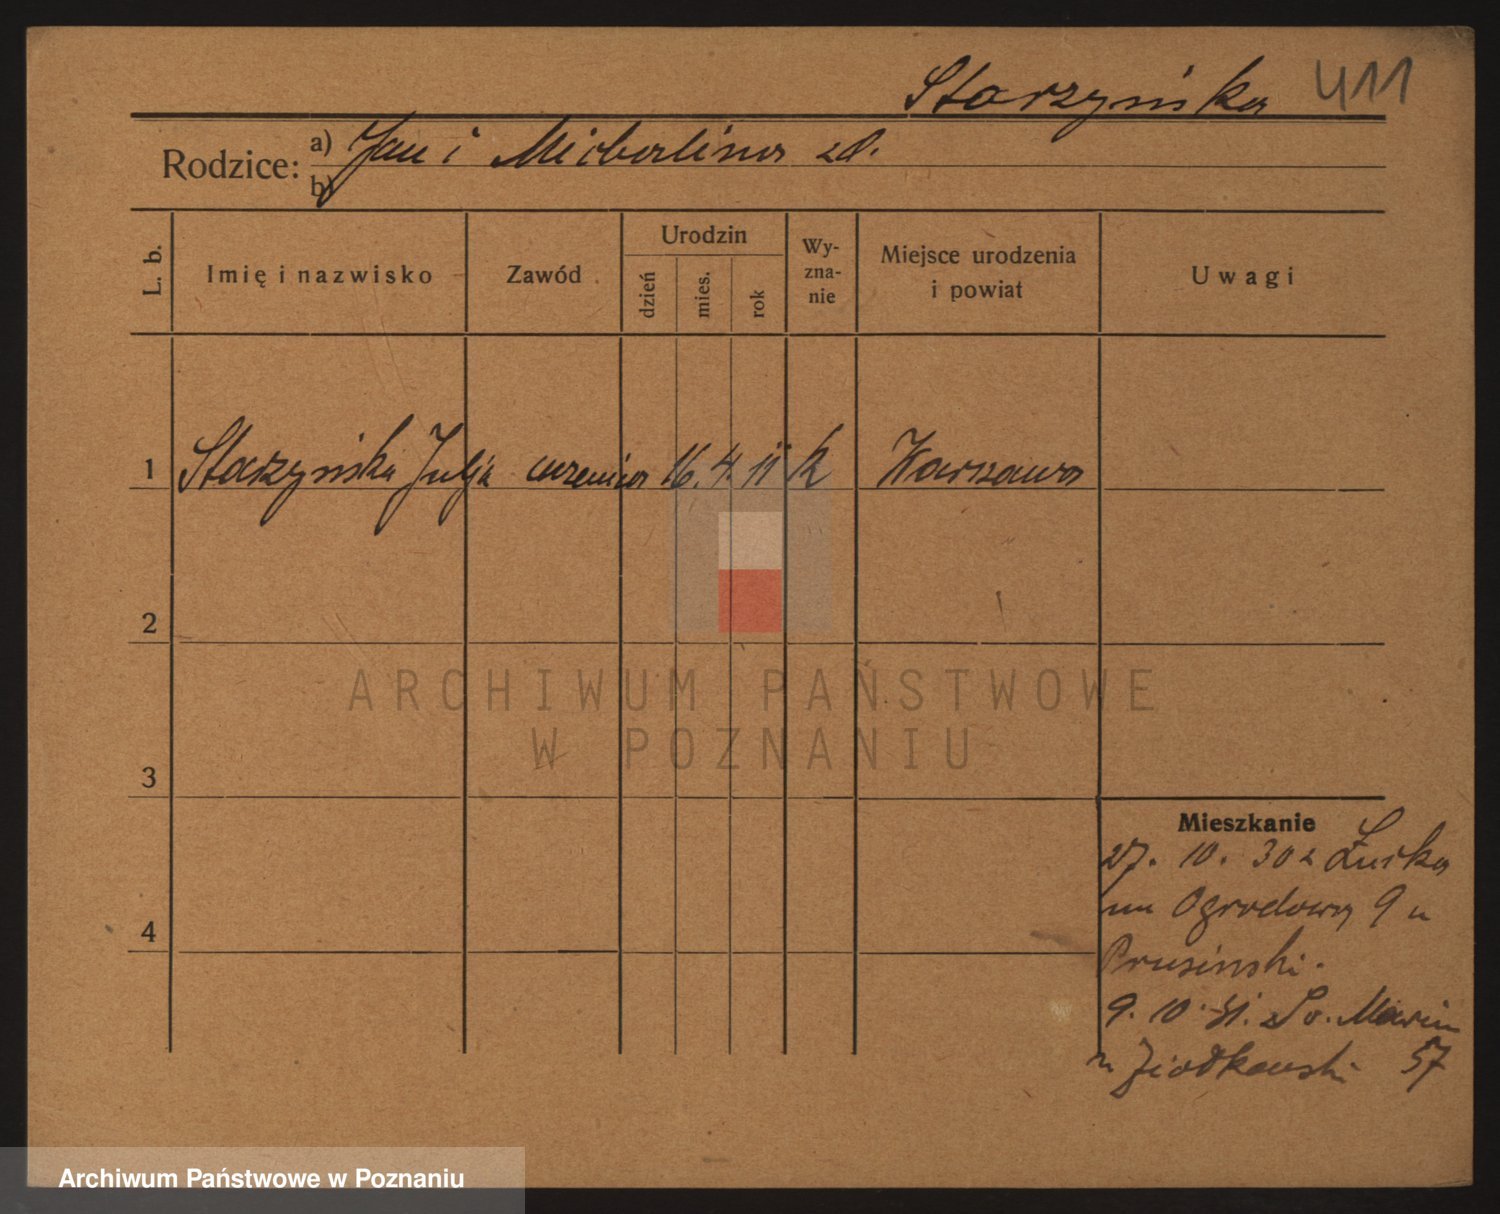 Starzyńska 411
Rodzice: a) Jan i Michalina zd.
b)
L. b. Imię i nazwisko Zawód Urodzin dzień mies. rok Wy-zna-nie Miejsce urodzenia i powiat Uwagi
1 Starzyńska Julja uczenica 16. 4. 11 k Warszawa
2
3
4
Mieszkanie
27. 10. 30 z
na Ogrodowa 9 u
Prusinski.
9. 10. 31. Św. Marcin
u Ziołkowski 57
ARCHIWUM PAŃSTWOWE
W POZNANIU
Archiwum Państwowe w Poznaniu